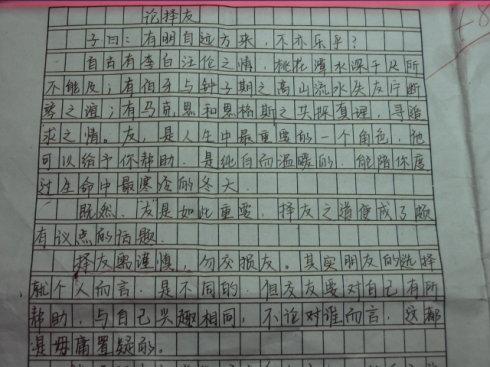 论择友
子曰：有朋自远方来，不亦乐乎？
自古有李白汪伦之情，桃花潭水深千尺所
不能及；有伯牙与钟子期之高山流水失友斤断
琴之谊；有马克思和恩格斯之共探真理，寻踏
求之情。友，是人生中最重要的一个角色，他
可以给予你帮助，是纯白而温暖的，能陪你度
过生命中最寒冷的冬天。
既然，友是如此重要，择友之道便成了颇
有议点的话题。
择友需谨慎，勿交损友。其实朋友的选择
就个人而言，是不同的，但交友要对自己有所
帮助，与自己兴趣相同，不论对谁而言，这都
是毋庸置疑的。